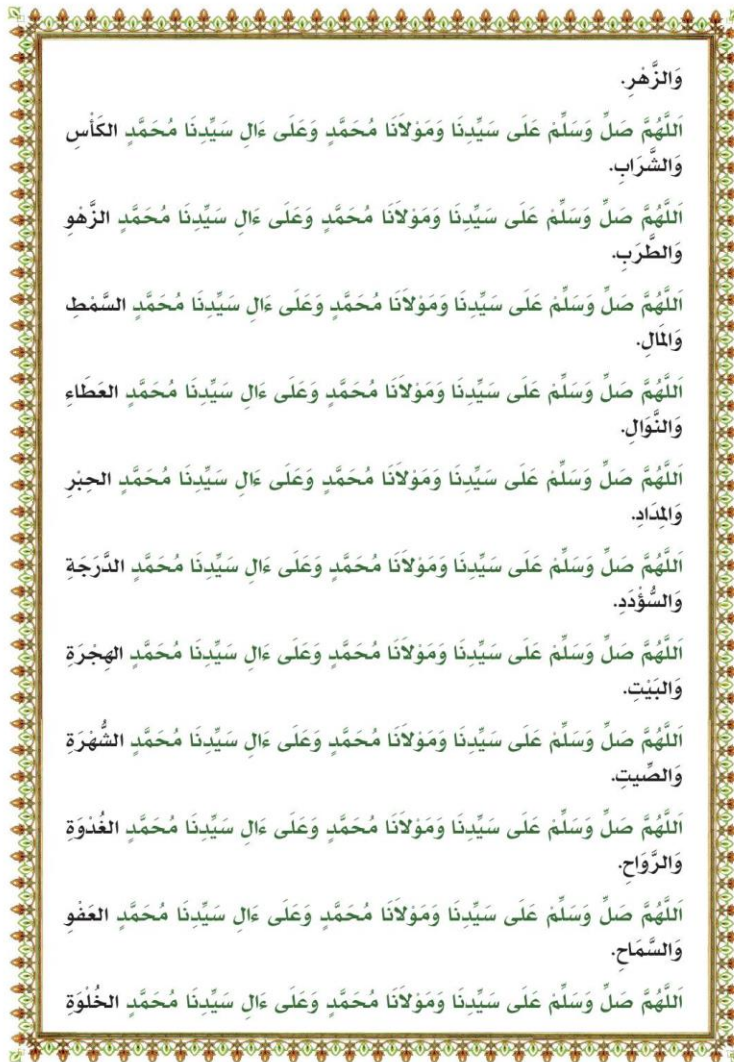 وَالزَّهْرِ.
اَللَّهُمَّ صَلِّ وَسَلِّمْ عَلَى سَيِّدِنَا وَمَوْلاَنَا مُحَمَّدٍ وَعَلَى ءَالِ سَيِّدِنَا مُحَمَّدٍ الكَأْسِ
وَالشَّرَابِ.
اَللَّهُمَّ صَلِّ وَسَلِّمْ عَلَى سَيِّدِنَا وَمَوْلاَنَا مُحَمَّدٍ وَعَلَى ءَالِ سَيِّدِنَا مُحَمَّدٍ الزَّهْوِ
وَالطَّرَبِ.
اَللَّهُمَّ صَلِّ وَسَلِّمْ عَلَى سَيِّدِنَا وَمَوْلاَنَا مُحَمَّدٍ وَعَلَى ءَالِ سَيِّدِنَا مُحَمَّدٍ السَّمْطِ
وَالمَالِ.
اَللَّهُمَّ صَلِّ وَسَلِّمْ عَلَى سَيِّدِنَا وَمَوْلاَنَا مُحَمَّدٍ وَعَلَى ءَالِ سَيِّدِنَا مُحَمَّدٍ العَطَاءِ
وَالنَّوَالِ.
اَللَّهُمَّ صَلِّ وَسَلِّمْ عَلَى سَيِّدِنَا وَمَوْلاَنَا مُحَمَّدٍ وَعَلَى ءَالِ سَيِّدِنَا مُحَمَّدٍ الحِبْرِ
وَالمِدَادِ.
اَللَّهُمَّ صَلِّ وَسَلِّمْ عَلَى سَيِّدِنَا وَمَوْلاَنَا مُحَمَّدٍ وَعَلَى ءَالِ سَيِّدِنَا مُحَمَّدٍ الدَّرَجَةِ
وَالسُّؤْدَدِ.
اَللَّهُمَّ صَلِّ وَسَلِّمْ عَلَى سَيِّدِنَا وَمَوْلاَنَا مُحَمَّدٍ وَعَلَى ءَالِ سَيِّدِنَا مُحَمَّدٍ الهِجْرَةِ
وَالبَيْتِ.
اَللَّهُمَّ صَلِّ وَسَلِّمْ عَلَى سَيِّدِنَا وَمَوْلاَنَا مُحَمَّدٍ وَعَلَى ءَالِ سَيِّدِنَا مُحَمَّدٍ الشُّهْرَةِ
وَالصِّيتِ.
اَللَّهُمَّ صَلِّ وَسَلِّمْ عَلَى سَيِّدِنَا وَمَوْلاَنَا مُحَمَّدٍ وَعَلَى ءَالِ سَيِّدِنَا مُحَمَّدٍ الغُدْوَةِ
وَالرَّوَاحِ.
اَللَّهُمَّ صَلِّ وَسَلِّمْ عَلَى سَيِّدِنَا وَمَوْلاَنَا مُحَمَّدٍ وَعَلَى ءَالِ سَيِّدِنَا مُحَمَّدٍ العَفْوِ
وَالسَّمَاحِ.
اَللَّهُمَّ صَلِّ وَسَلِّمْ عَلَى سَيِّدِنَا وَمَوْلاَنَا مُحَمَّدٍ وَعَلَى ءَالِ سَيِّدِنَا مُحَمَّدٍ الخُلْوَةِ